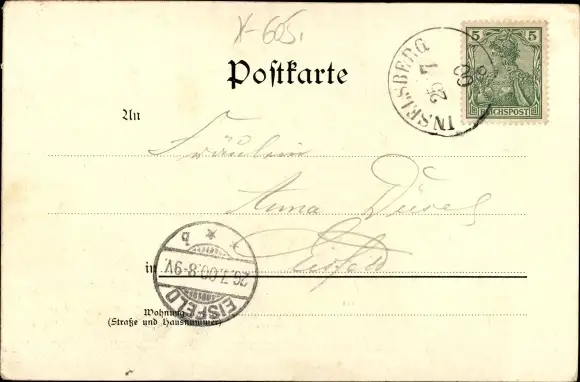 X-605.
Postkarte
5 5
REICHSPOST
INSELSBERG
25 7 00
An
Fräulein
Anna
Eisfeld
in
EISFELD
26.7.00.8-9V.
* * b
Wohnung
(Straße und Hausnummer)